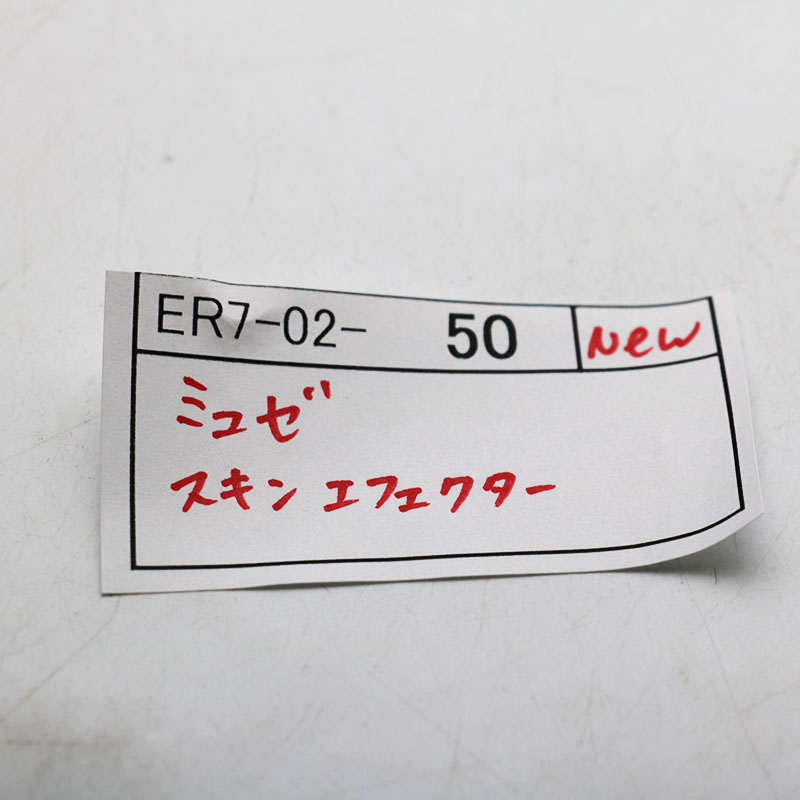 ER7-02- 50 New
ミュゼ
スキンエフェクター